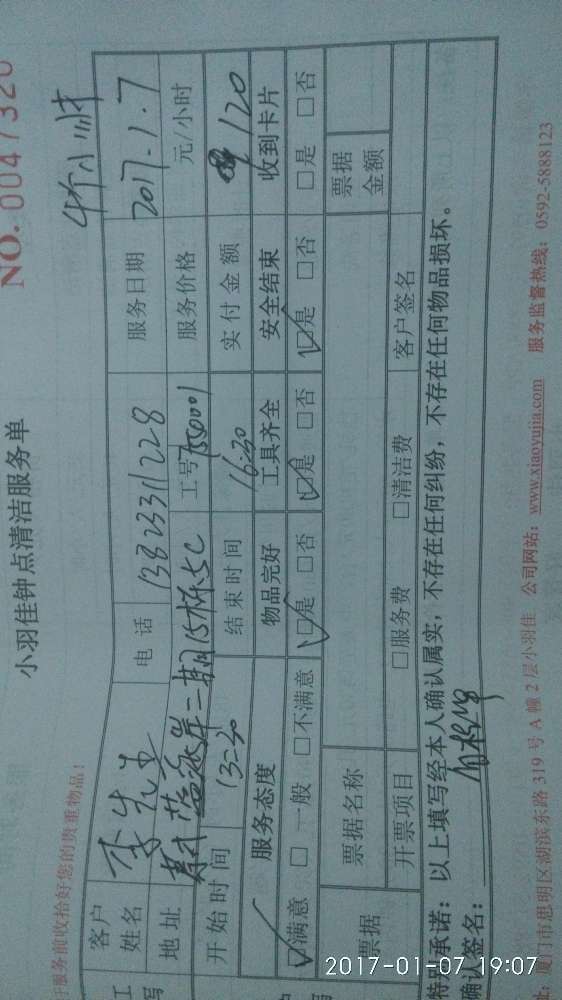 小羽佳钟点清洁服务单
NO. 0047320
服务前收拾好您的贵重物品!
4个小时
客户姓名 李先生 电话 13823311228 服务日期 2017.1.7
地址 二期15栋5C 工号 服务价格 元/小时
开始时间 13:30 结束时间 16:30 实付金额 120
服务态度 物品完好 工具齐全 安全结束 收到卡片
☑满意 □一般 □不满意 ☑是 □否 ☑是 □否 ☑是 □否 □是 □否
票据 票据名称 票据金额
开票项目 □服务费 □清洁费 客户签名
承诺:以上填写经本人确认属实,不存在任何纠纷,不存在任何物品损坏。
确认签名:
厦门市思明区湖滨东路 319 号 A 幢 2 层小羽佳 公司网站:www.xiaoyujia.com 服务监督热线:0592-5888123
2017-01-07 19:07